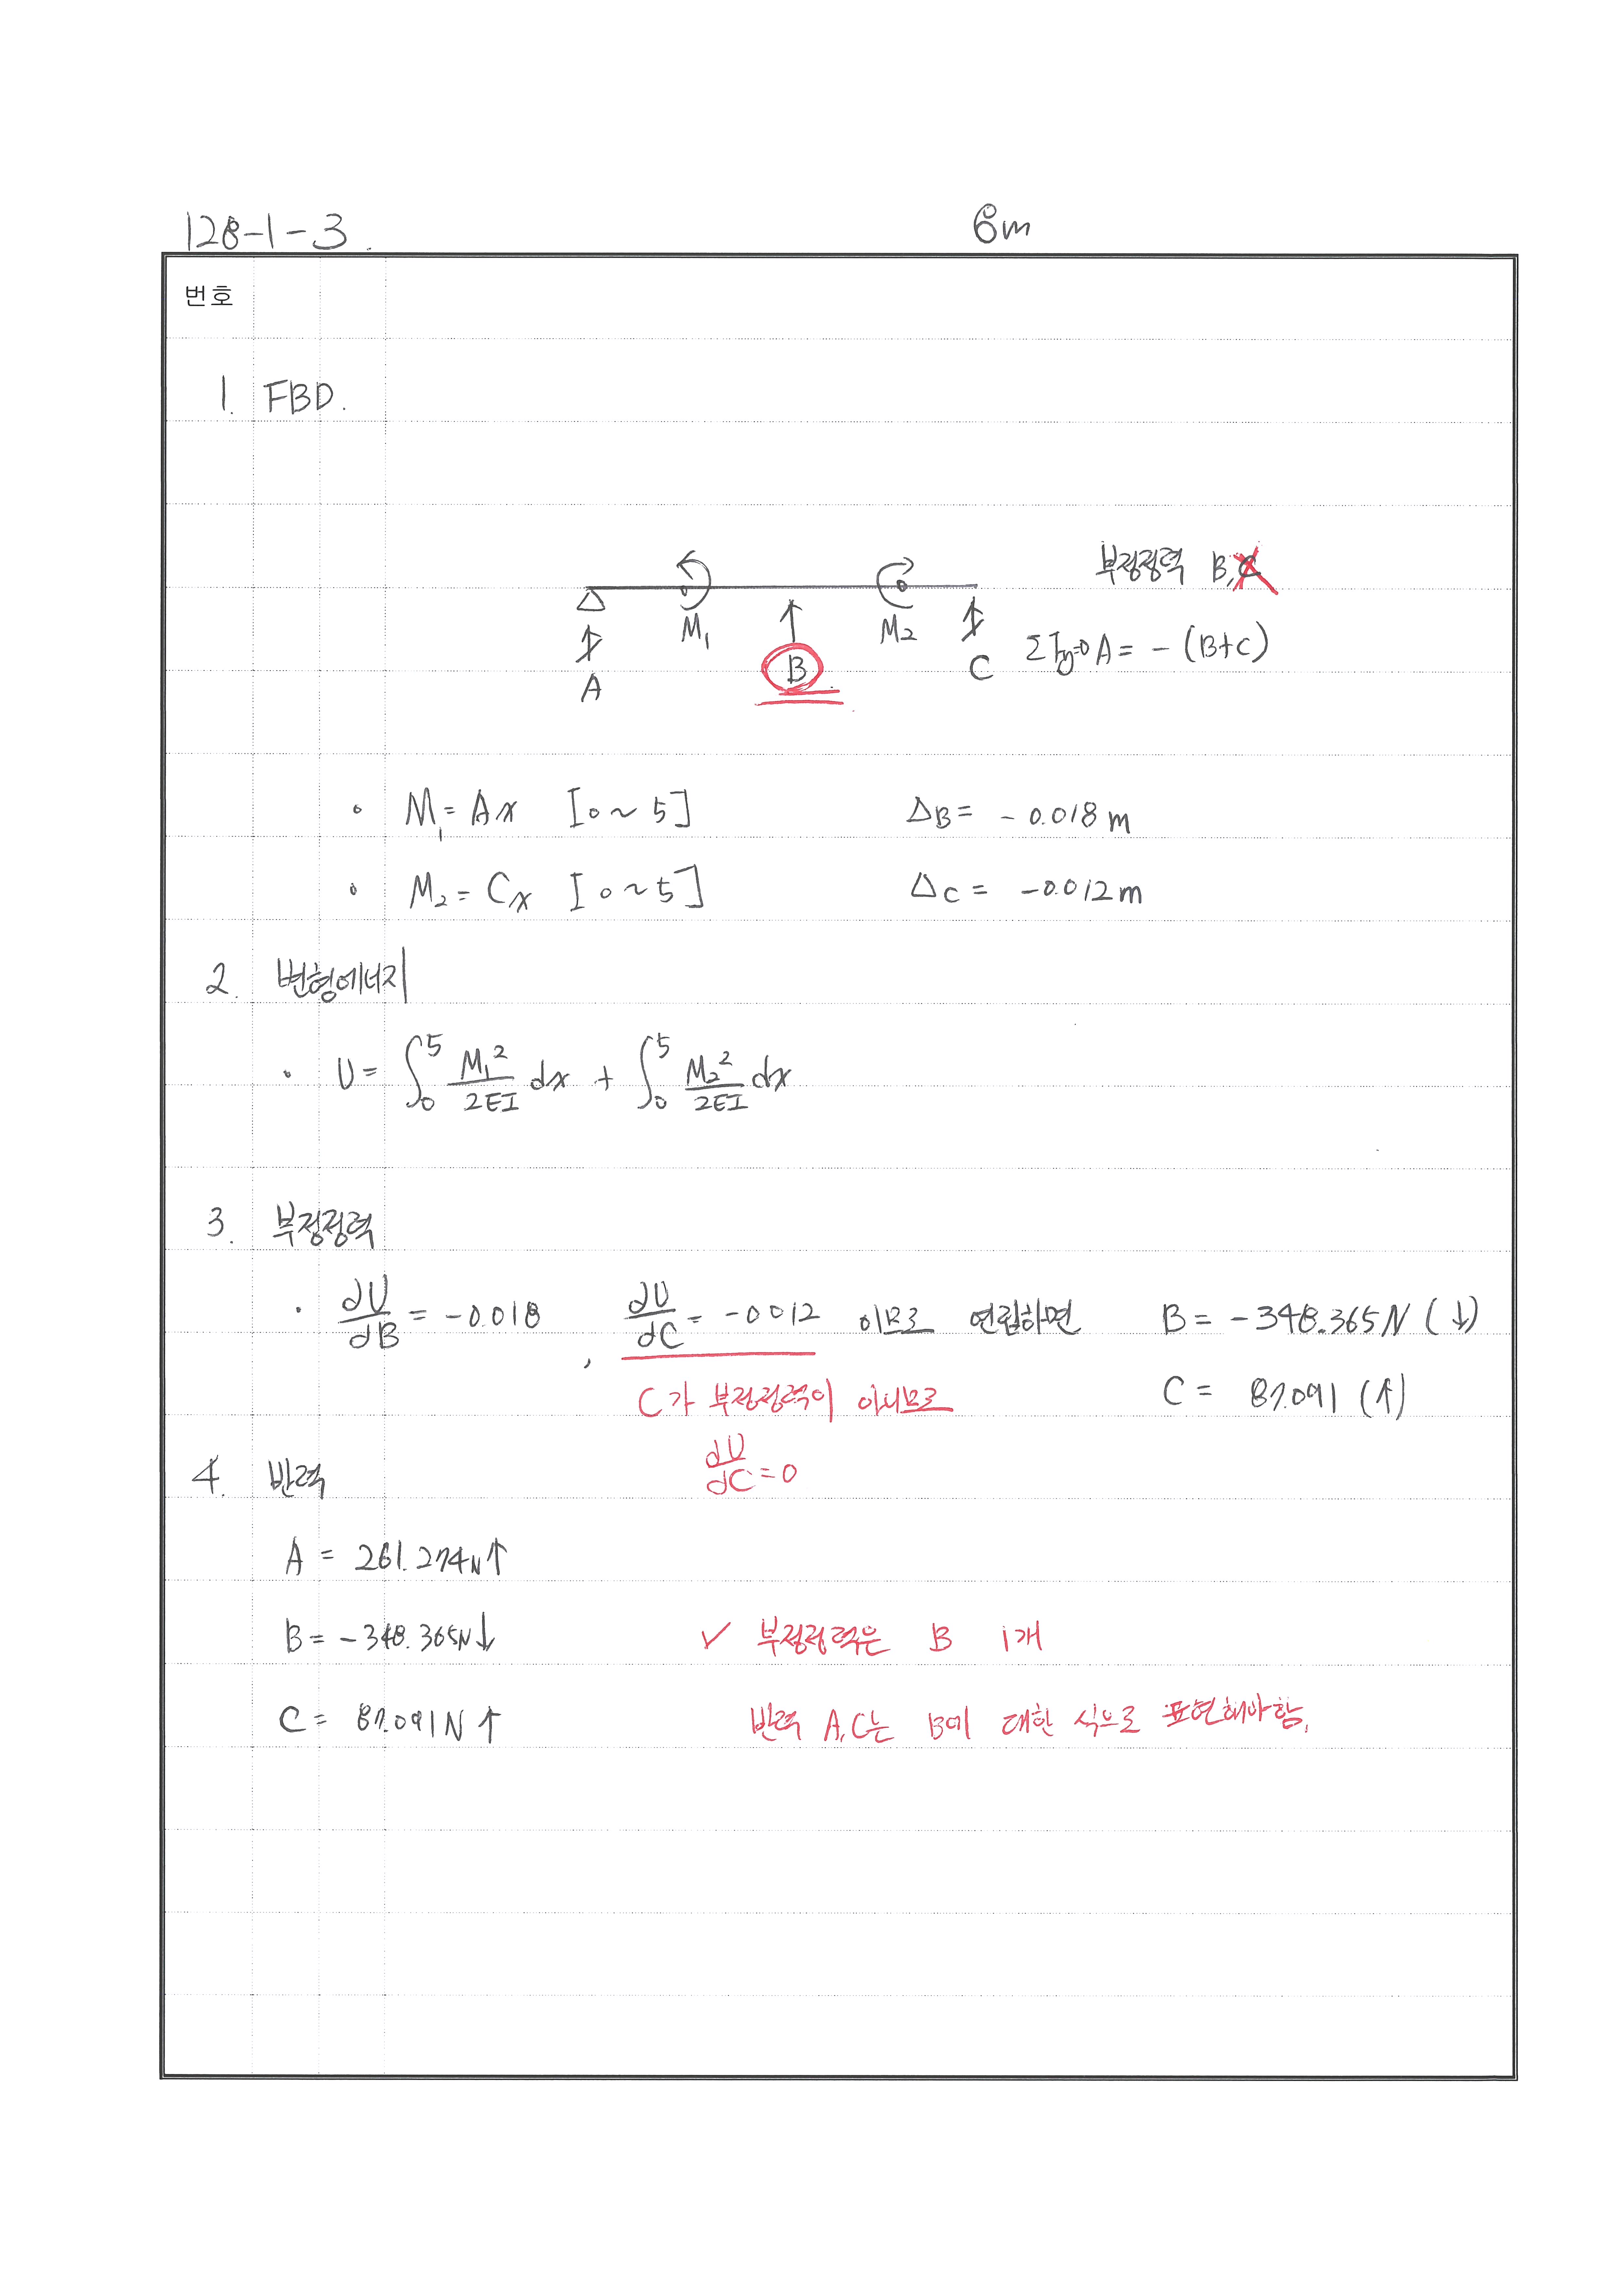 128-1-3.
6m
번호
1. FBD.
부정정력 B, C
M1 M2
A B C
ΣFy=0 A = - (B+C)
• M1 = Ax [0 ~ 5] ΔB = - 0.018 m
• M2 = Cx [0 ~ 5] ΔC = -0.012 m
2. 변형에너지
• U = ∫₀⁵ M1²/2EI dx + ∫₀⁵ M2²/2EI dx
3. 부정정력
• ∂U/∂B = -0.018 , ∂U/∂C = -0.012 이므로 연립하면 B = -348.365N (↓)
C = 87.091 (↑)
C가 부정정력이 아니므로
∂U/∂C = 0
4. 반력
A = 261.274N↑
B = -348.365N↓
✓ 부정정력은 B 1개
C = 87.091N ↑
반력 A,C는 B에 대한 식으로 표현해야함.